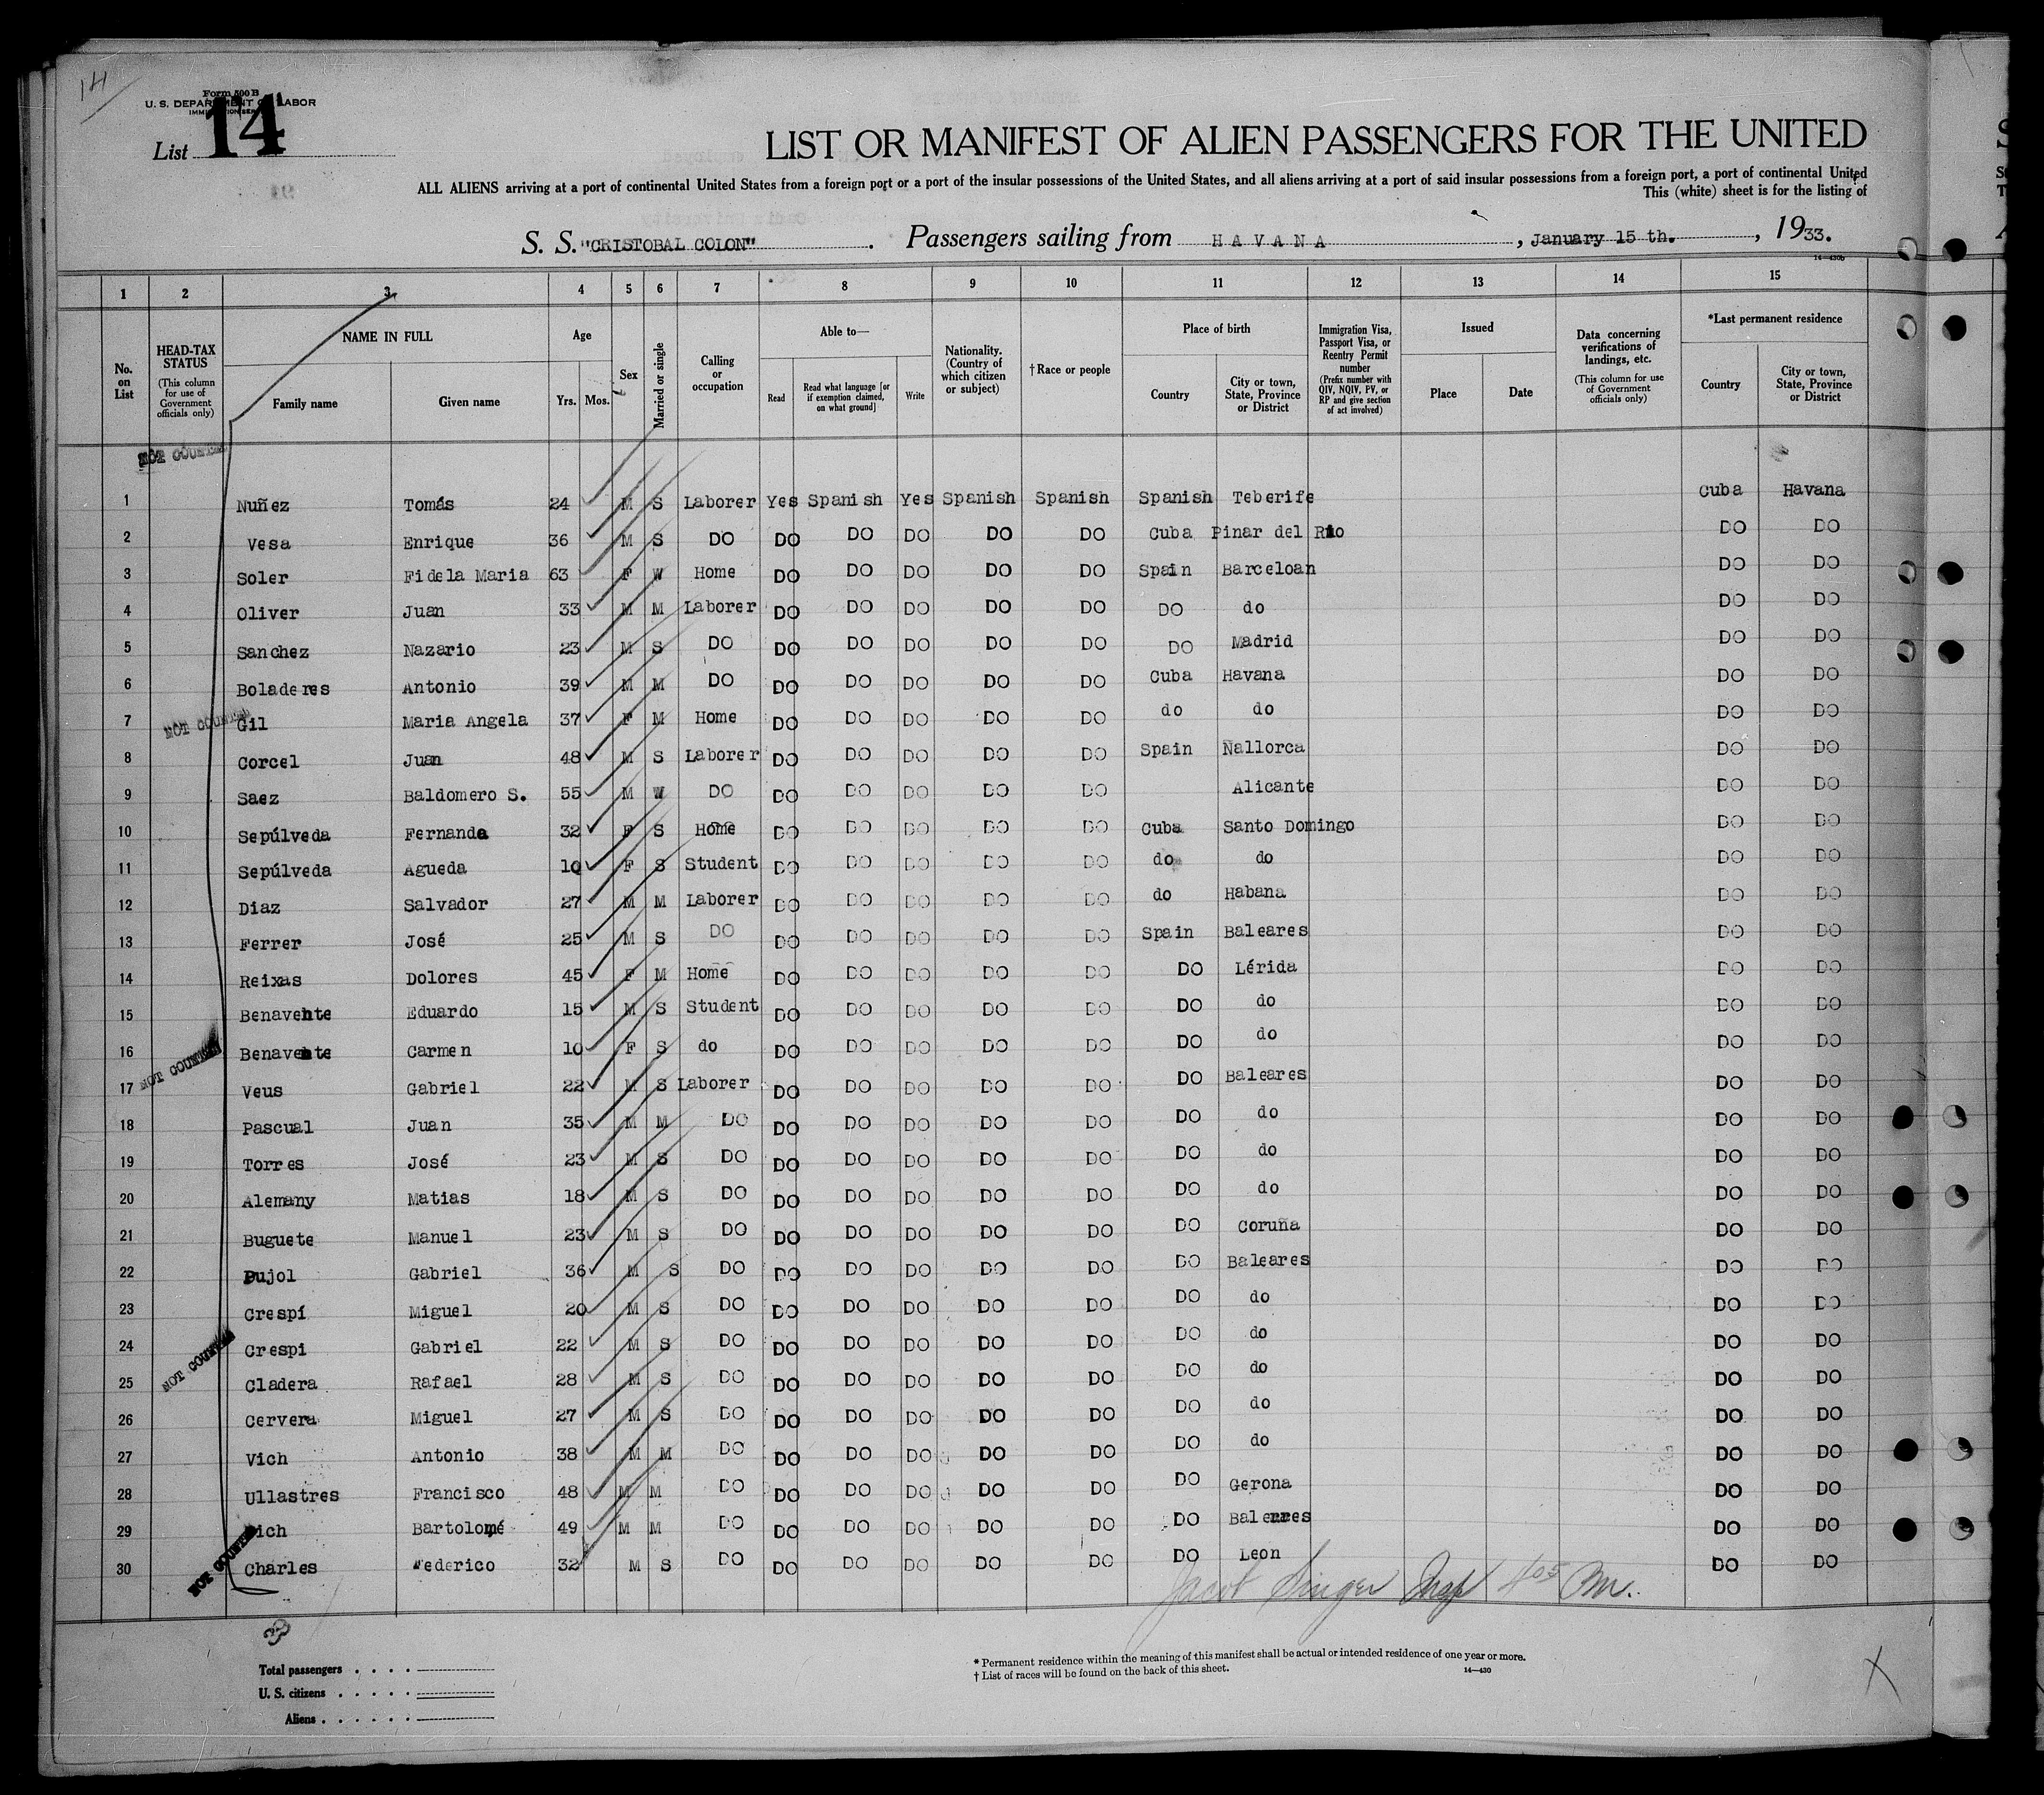 14
Form 500 B
U. S. DEPARTMENT OF LABOR
List 14
LIST OR MANIFEST OF ALIEN PASSENGERS FOR THE UNITED
ALL ALIENS arriving at a port of continental United States from a foreign port or a port of the insular possessions of the United States, and all aliens arriving at a port of said insular possessions from a foreign port, a port of continental United
This (white) sheet is for the listing of
S. S. "CRISTOBAL COLON" . Passengers sailing from HAVANA , January 15 th. , 1933.
14—430b
1 2 3 4 5 6 7 8 9 10 11 12 13 14 15
No. on List
HEAD-TAX STATUS (This column for use of Government officials only)
NAME IN FULL
Family name Given name
Age
Yrs. Mos.
Sex
Married or single
Calling or occupation
Able to—
Read Read what language [or if exemption claimed, on what ground] Write
Nationality. (Country of which citizen or subject)
†Race or people
Place of birth
Country City or town, State, Province or District
Immigration Visa, Passport Visa, or Reentry Permit number (Prefix number with QIV, NQIV, PV, or RP and give section of act involved)
Issued
Place Date
Data concerning verifications of landings, etc. (This column for use of Government officials only)
*Last permanent residence
Country City or town, State, Province or District
NOT COUNTED
1 Nuñez Tomás 24 M S Laborer Yes Spanish Yes Spanish Spanish Spanish Teberife Cuba Havana
2 Vesa Enrique 36 M S DO DO DO DO DO DO Cuba Pinar del Rio DO DO
3 Soler Fidela Maria 63 F W Home DO DO DO DO DO Spain Barceloan DO DO
4 Oliver Juan 33 M M Laborer DO DO DO DO DO DO do DO DO
5 Sanchez Nazario 23 M S DO DO DO DO DO DO DO Madrid DO DO
6 Boladeres Antonio 39 M M DO DO DO DO DO DO Cuba Havana DO DO
NOT COUNTED
7 Gil Maria Angela 37 F M Home DO DO DO DO DO do do DO DO
8 Corcel Juan 48 M S Laborer DO DO DO DO DO Spain Ñallorca DO DO
9 Saez Baldomero S. 55 M W DO DO DO DO DO DO Alicante DO DO
10 Sepúlveda Fernanda 32 F S Home DO DO DO DO DO Cuba Santo Domingo DO DO
11 Sepúlveda Agueda 10 F S Student DO DO DO DO DO do do DO DO
12 Diaz Salvador 27 M M Laborer DO DO DO DO DO do Habana DO DO
13 Ferrer José 25 M S DO DO DO DO DO DO Spain Baleares DO DO
14 Reixas Dolores 45 F M Home DO DO DO DO DO DO Lérida DO DO
15 Benavente Eduardo 15 M S Student DO DO DO DO DO DO do DO DO
16 Benavente Carmen 10 F S do DO DO DO DO DO DO do DO DO
NOT COUNTED
17 Veus Gabriel 22 M S Laborer DO DO DO DO DO DO Baleares DO DO
18 Pascual Juan 35 M M DO DO DO DO DO DO DO do DO DO
19 Torres José 23 M S DO DO DO DO DO DO DO do DO DO
20 Alemany Matias 18 M S DO DO DO DO DO DO DO do DO DO
21 Buguete Manuel 23 M S DO DO DO DO DO DO DO Coruña DO DO
22 Pujol Gabriel 36 M S DO DO DO DO DO DO DO Baleares DO DO
23 Crespí Miguel 20 M S DO DO DO DO DO DO DO do DO DO
24 Crespi Gabriel 22 M S DO DO DO DO DO DO DO do DO DO
NOT COUNTED
25 Cladera Rafael 28 M S DO DO DO DO DO DO DO do DO DO
26 Cervera Miguel 27 M S DO DO DO DO DO DO DO do DO DO
27 Vich Antonio 38 M M DO DO DO DO DO DO DO do DO DO
28 Ullastres Francisco 48 M M DO DO DO DO DO DO DO Gerona DO DO
29 Vich Bartolomé 49 M M DO DO DO DO DO DO DO Balerres DO DO
NOT COUNTED
30 Charles Federico 32 M S DO DO DO DO DO DO DO Leon DO DO
Jacob Singer Insp 4 05 Pm.
Total passengers
U. S. citizens
Aliens
* Permanent residence within the meaning of this manifest shall be actual or intended residence of one year or more.
† List of races will be found on the back of this sheet. 14—430